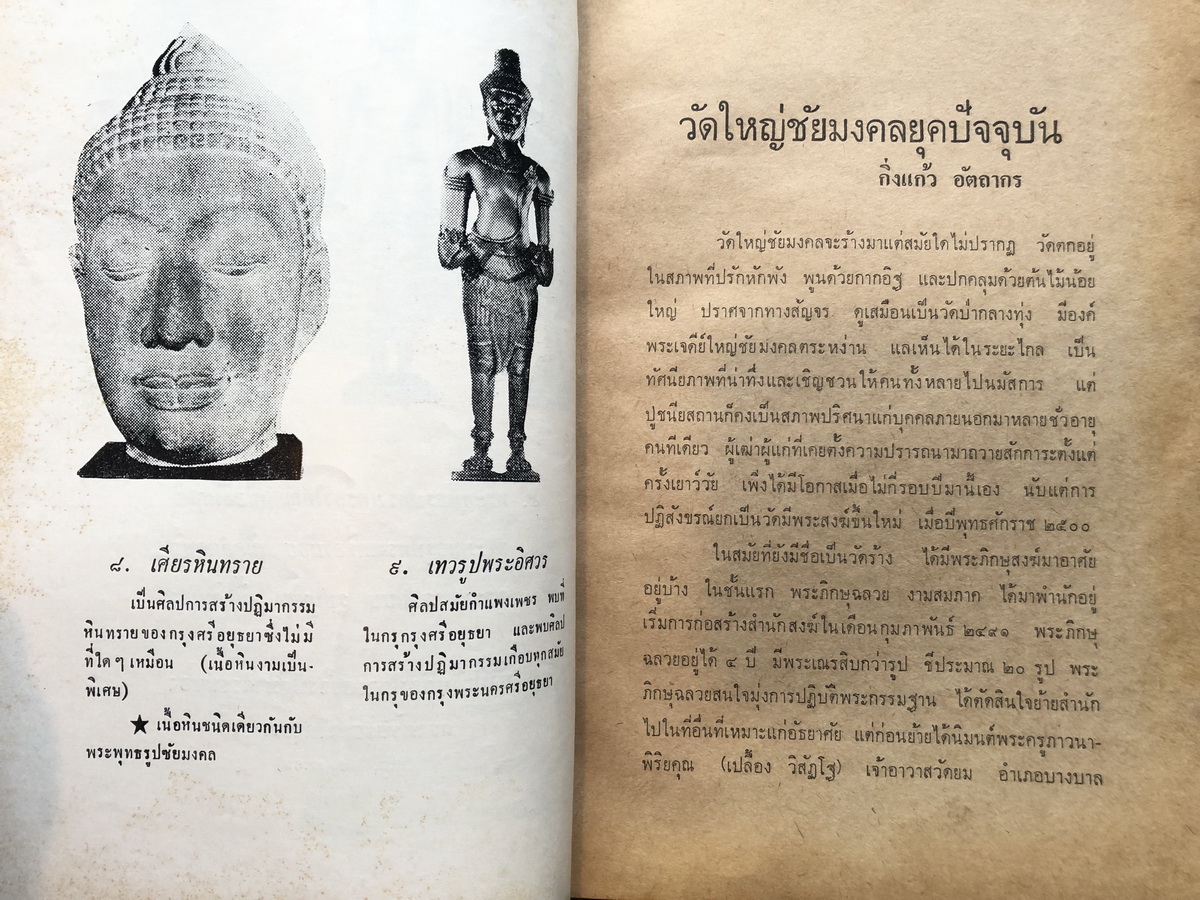 ๘. เศียรหินทราย
เป็นศิลปการสร้างปฏิมากรรม
หินทรายของกรุงศรีอยุธยาซึ่งไม่มี
ที่ใดๆ เหมือน (เนื้อหินงามเป็น-
พิเศษ)
★ เนื้อหินชนิดเดียวกันกับ
พระพุทธรูปชัยมงคล
๙. เทวรูปพระอิศวร
ศิลปสมัยกำแพงเพชร พบที่
ในกรุกรุงศรีอยุธยา และพบศิลป
การสร้างปฏิมากรรมเกือบทุกสมัย
ในกรุของกรุงพระนครศรีอยุธยา
วัดใหญ่ชัยมงคลยุคปัจจุบัน
กิ่งแก้ว อัตถากร
วัดใหญ่ชัยมงคลจะร้างมาแต่สมัยใดไม่ปรากฏ วัดตกอยู่
ในสภาพที่ปรักหักพัง พูนด้วยกากอิฐ และปกคลุมด้วยต้นไม้น้อย
ใหญ่ ปราศจากทางสัญจร ดูเสมือนเป็นวัดป่ากลางทุ่ง มีองค์
พระเจดีย์ใหญ่ชัยมงคลตระหง่าน แลเห็นได้ในระยะไกล เป็น
ทัศนียภาพที่น่าทึ่งและเชิญชวนให้คนทั้งหลายไปนมัสการ แต่
ปูชนียสถานก็คงเป็นสภาพปริศนาแก่บุคคลภายนอกมาหลายชั่วอายุ
คนทีเดียว ผู้เฒ่าผู้แก่ที่เคยตั้งความปรารถนามาถวายสักการะตั้งแต่
ครั้งเยาว์วัย เพิ่งได้มีโอกาสเมื่อไม่กี่รอบปีมานี้เอง นับแต่การ
ปฏิสังขรณ์ยกเป็นวัดมีพระสงฆ์ขึ้นใหม่ เมื่อปีพุทธศักราช ๒๕๐๐
ในสมัยที่ยังมีชื่อเป็นวัดร้าง ได้มีพระภิกษุสงฆ์มาอาศัย
อยู่บ้าง ในชั้นแรก พระภิกษุฉลวย งามสมภาค ได้มาพำนักอยู่
เริ่มการก่อสร้างสำนักสงฆ์ในเดือนกุมภาพันธ์ ๒๔๙๑ พระภิกษุ
ฉลวยอยู่ได้ ๔ ปี มีพระเณรสิบกว่ารูป ชีประมาณ ๒๐ รูป พระ
ภิกษุฉลวยสนใจมุ่งการปฏิบัติพระกรรมฐาน ได้ตัดสินใจย้ายสำนัก
ไปในที่อื่นที่เหมาะแก่อัธยาศัย แต่ก่อนย้ายได้นิมนต์พระครูภาวนา-
พิริยคุณ (เปลื้อง วิสัฏโฐ) เจ้าอาวาสวัดยม อำเภอบางบาล